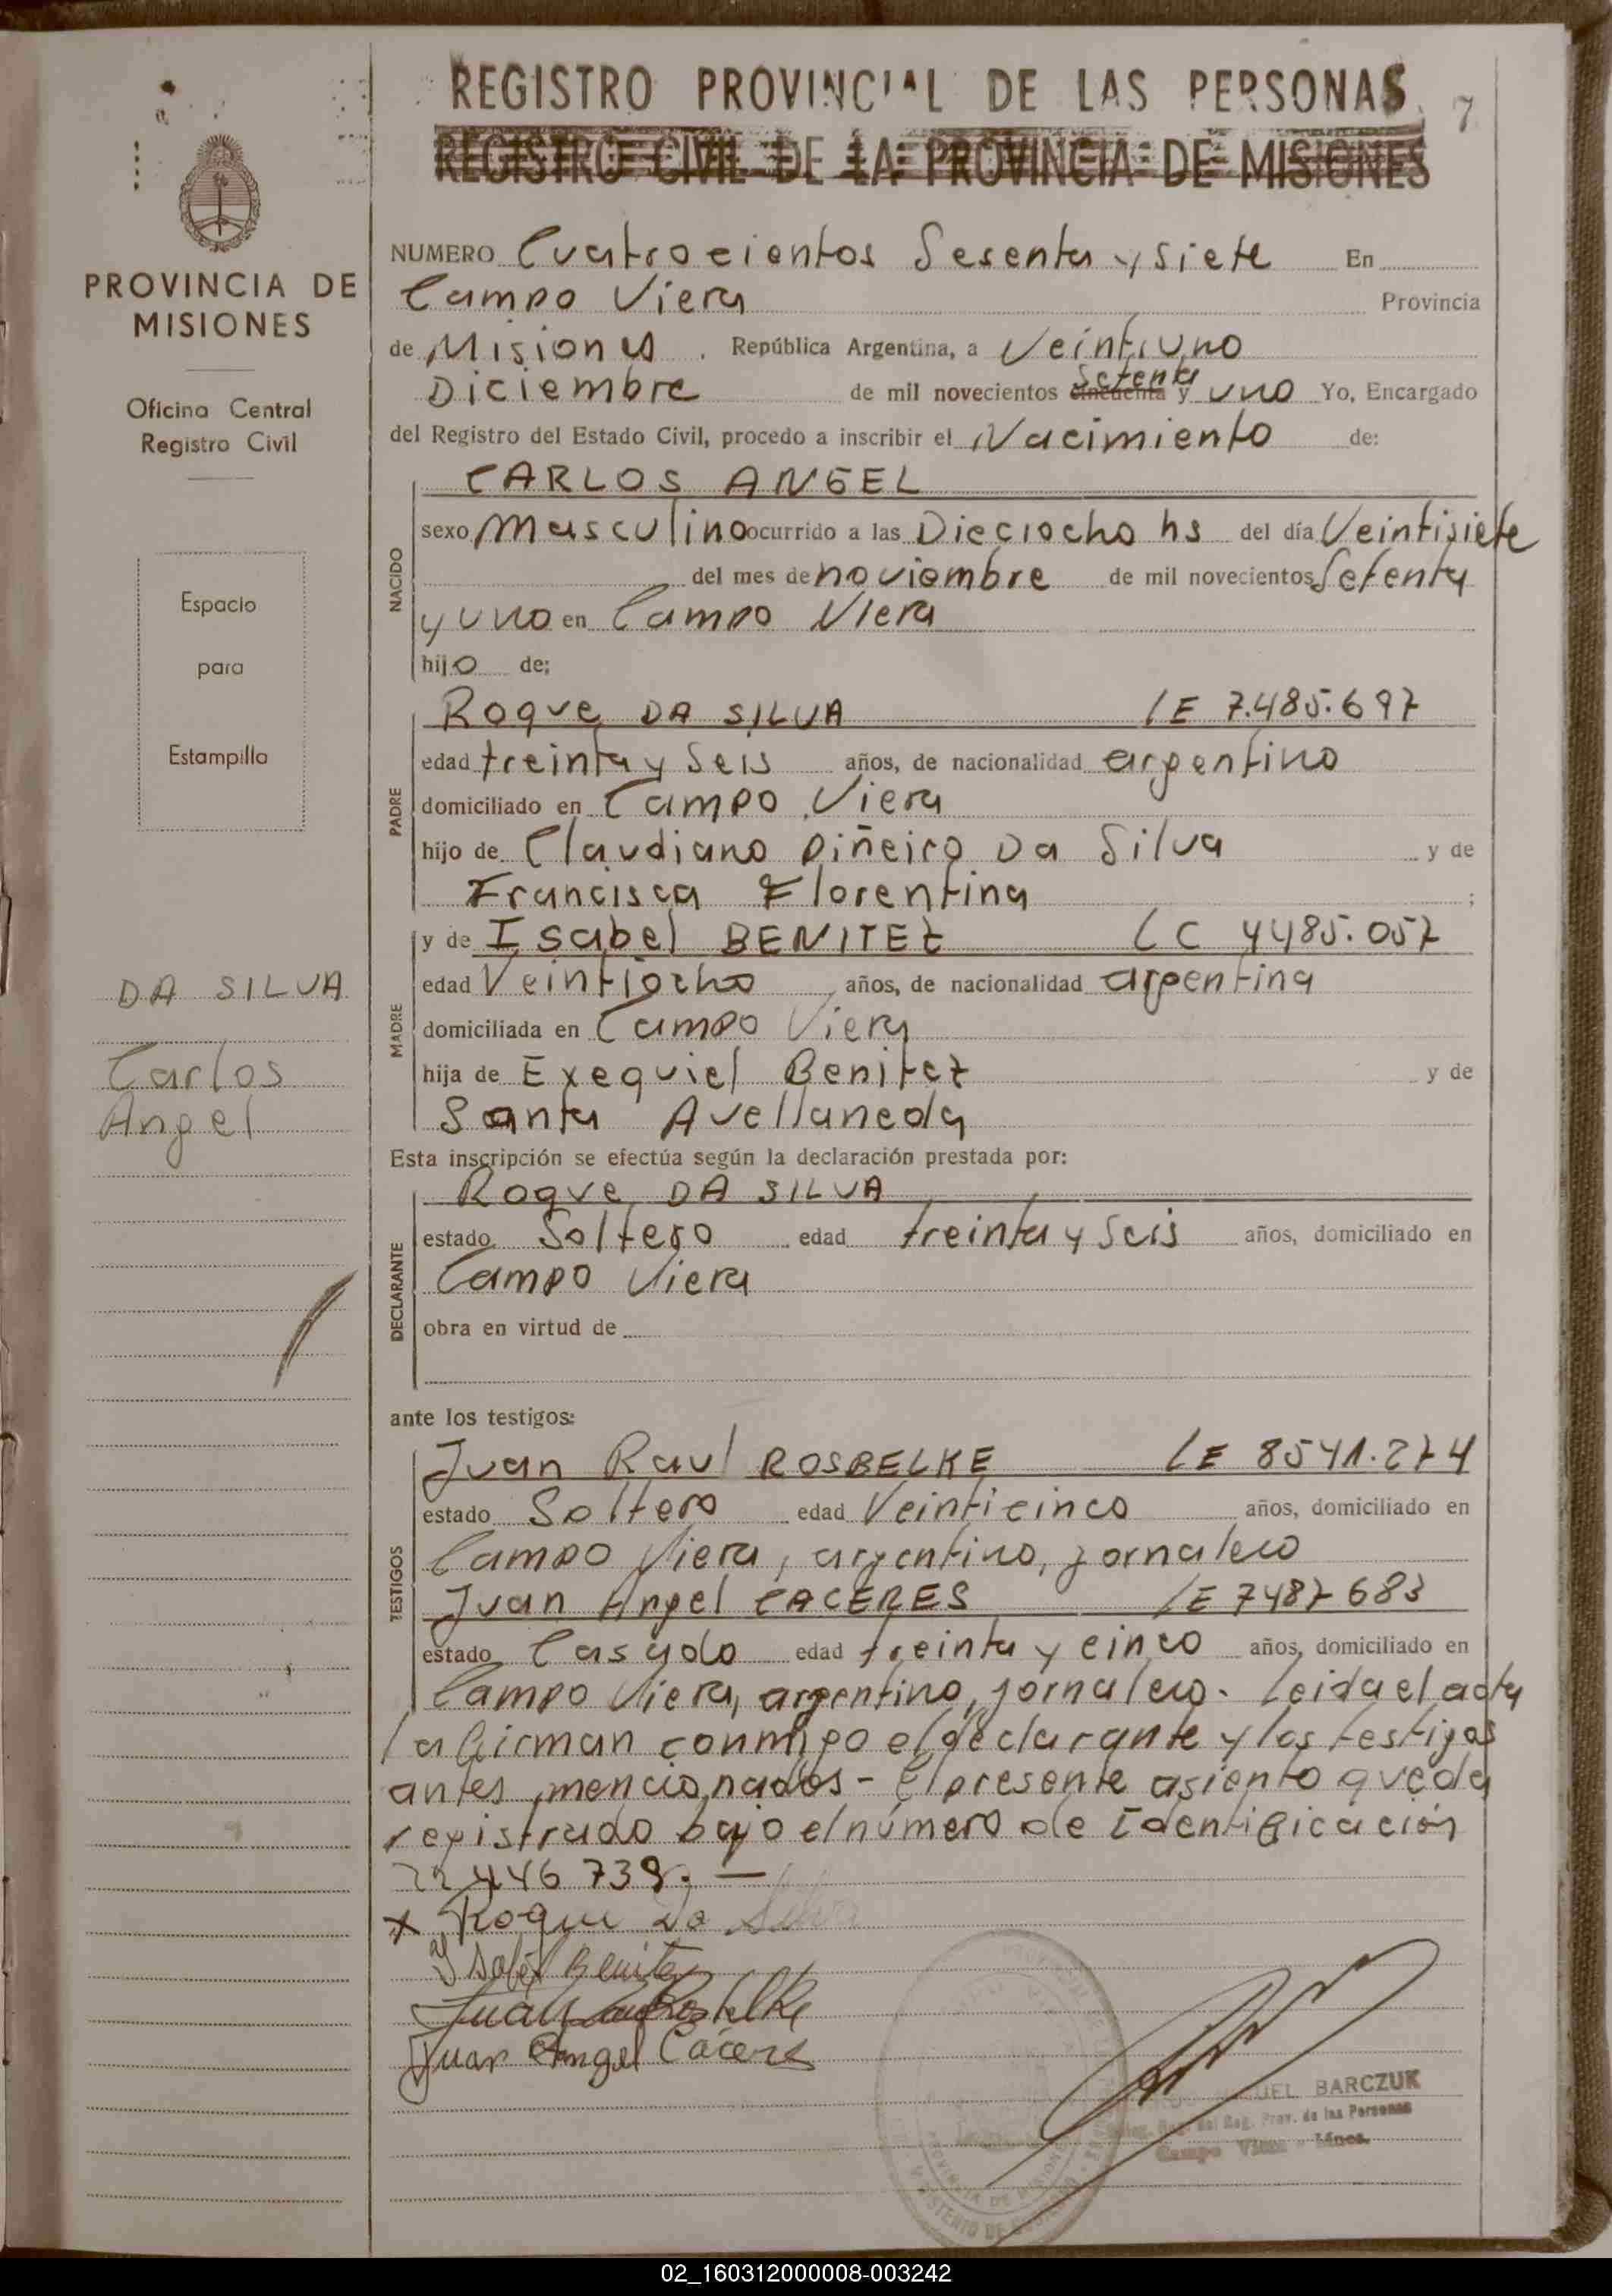 REGISTRO PROVINCIAL DE LAS PERSONAS
7
REGISTRO CIVIL DE LA PROVINCIA DE MISIONES
PROVINCIA DE
MISIONES
Oficina Central
Registro Civil
Espacio
para
Estampilla
DA SILVA
Carlos
Angel
NUMERO Cuatrocientos Sesenta y siete En
Campo Viera Provincia
de Misiones . República Argentina, a Veintiuno
Diciembre de mil novecientos cincuenta Setenta y uno Yo, Encargado
del Registro del Estado Civil, procedo a inscribir el Nacimiento de:
NACIDO
CARLOS ANGEL
sexo Masculino ocurrido a las Dieciocho hs del día Veintisiete
del mes de noviembre de mil novecientos Setenta
y uno en Campo Viera
hijo de;
PADRE
Roque DA SILVA LE 7.485.697
edad treinta y Seis años, de nacionalidad argentino
domiciliado en Campo Viera
hijo de Claudiano Piñeiro Da Silva y de
Francisca Florentina ;
MADRE
y de Isabel BENITEZ LC 4485.057
edad Veintiocho años, de nacionalidad argentina
domiciliada en Campo Viera
hija de Exequiel Benitez y de
Santa Avellaneda
Esta inscripción se efectúa según la declaración prestada por:
DECLARANTE
Roque DA SILVA
estado Soltero edad treinta y Seis años, domiciliado en
Campo Viera
obra en virtud de
ante los testigos:
TESTIGOS
Juan Raul ROSBELKE LE 8541.274
estado Soltero edad Veinticinco años, domiciliado en
Campo Viera, argentino, jornalero
Juan Angel CACERES LE 7487683
estado Casado edad treinta y cinco años, domiciliado en
Campo Viera, argentino, jornalero. Leida el acta
la firman conmigo el declarante y los testigos
antes mencionados - El presente asiento queda
registrado bajo el número de Identificación
22 446 739. —
x Roque Da Silva
Ysabel Benitez
Juan Raul Rosbelke
Juan Angel Cáceres
BARCZUK
del Reg. Prov. de las Personas
Campo Viera - Mnes.
PROVINCIA DE MISIONES
MINISTERIO DE
02_160312000008-003242